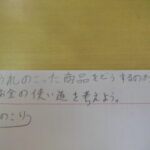 うれのこった商品をどうするのか
お金の使い道を考えよう。
のこり